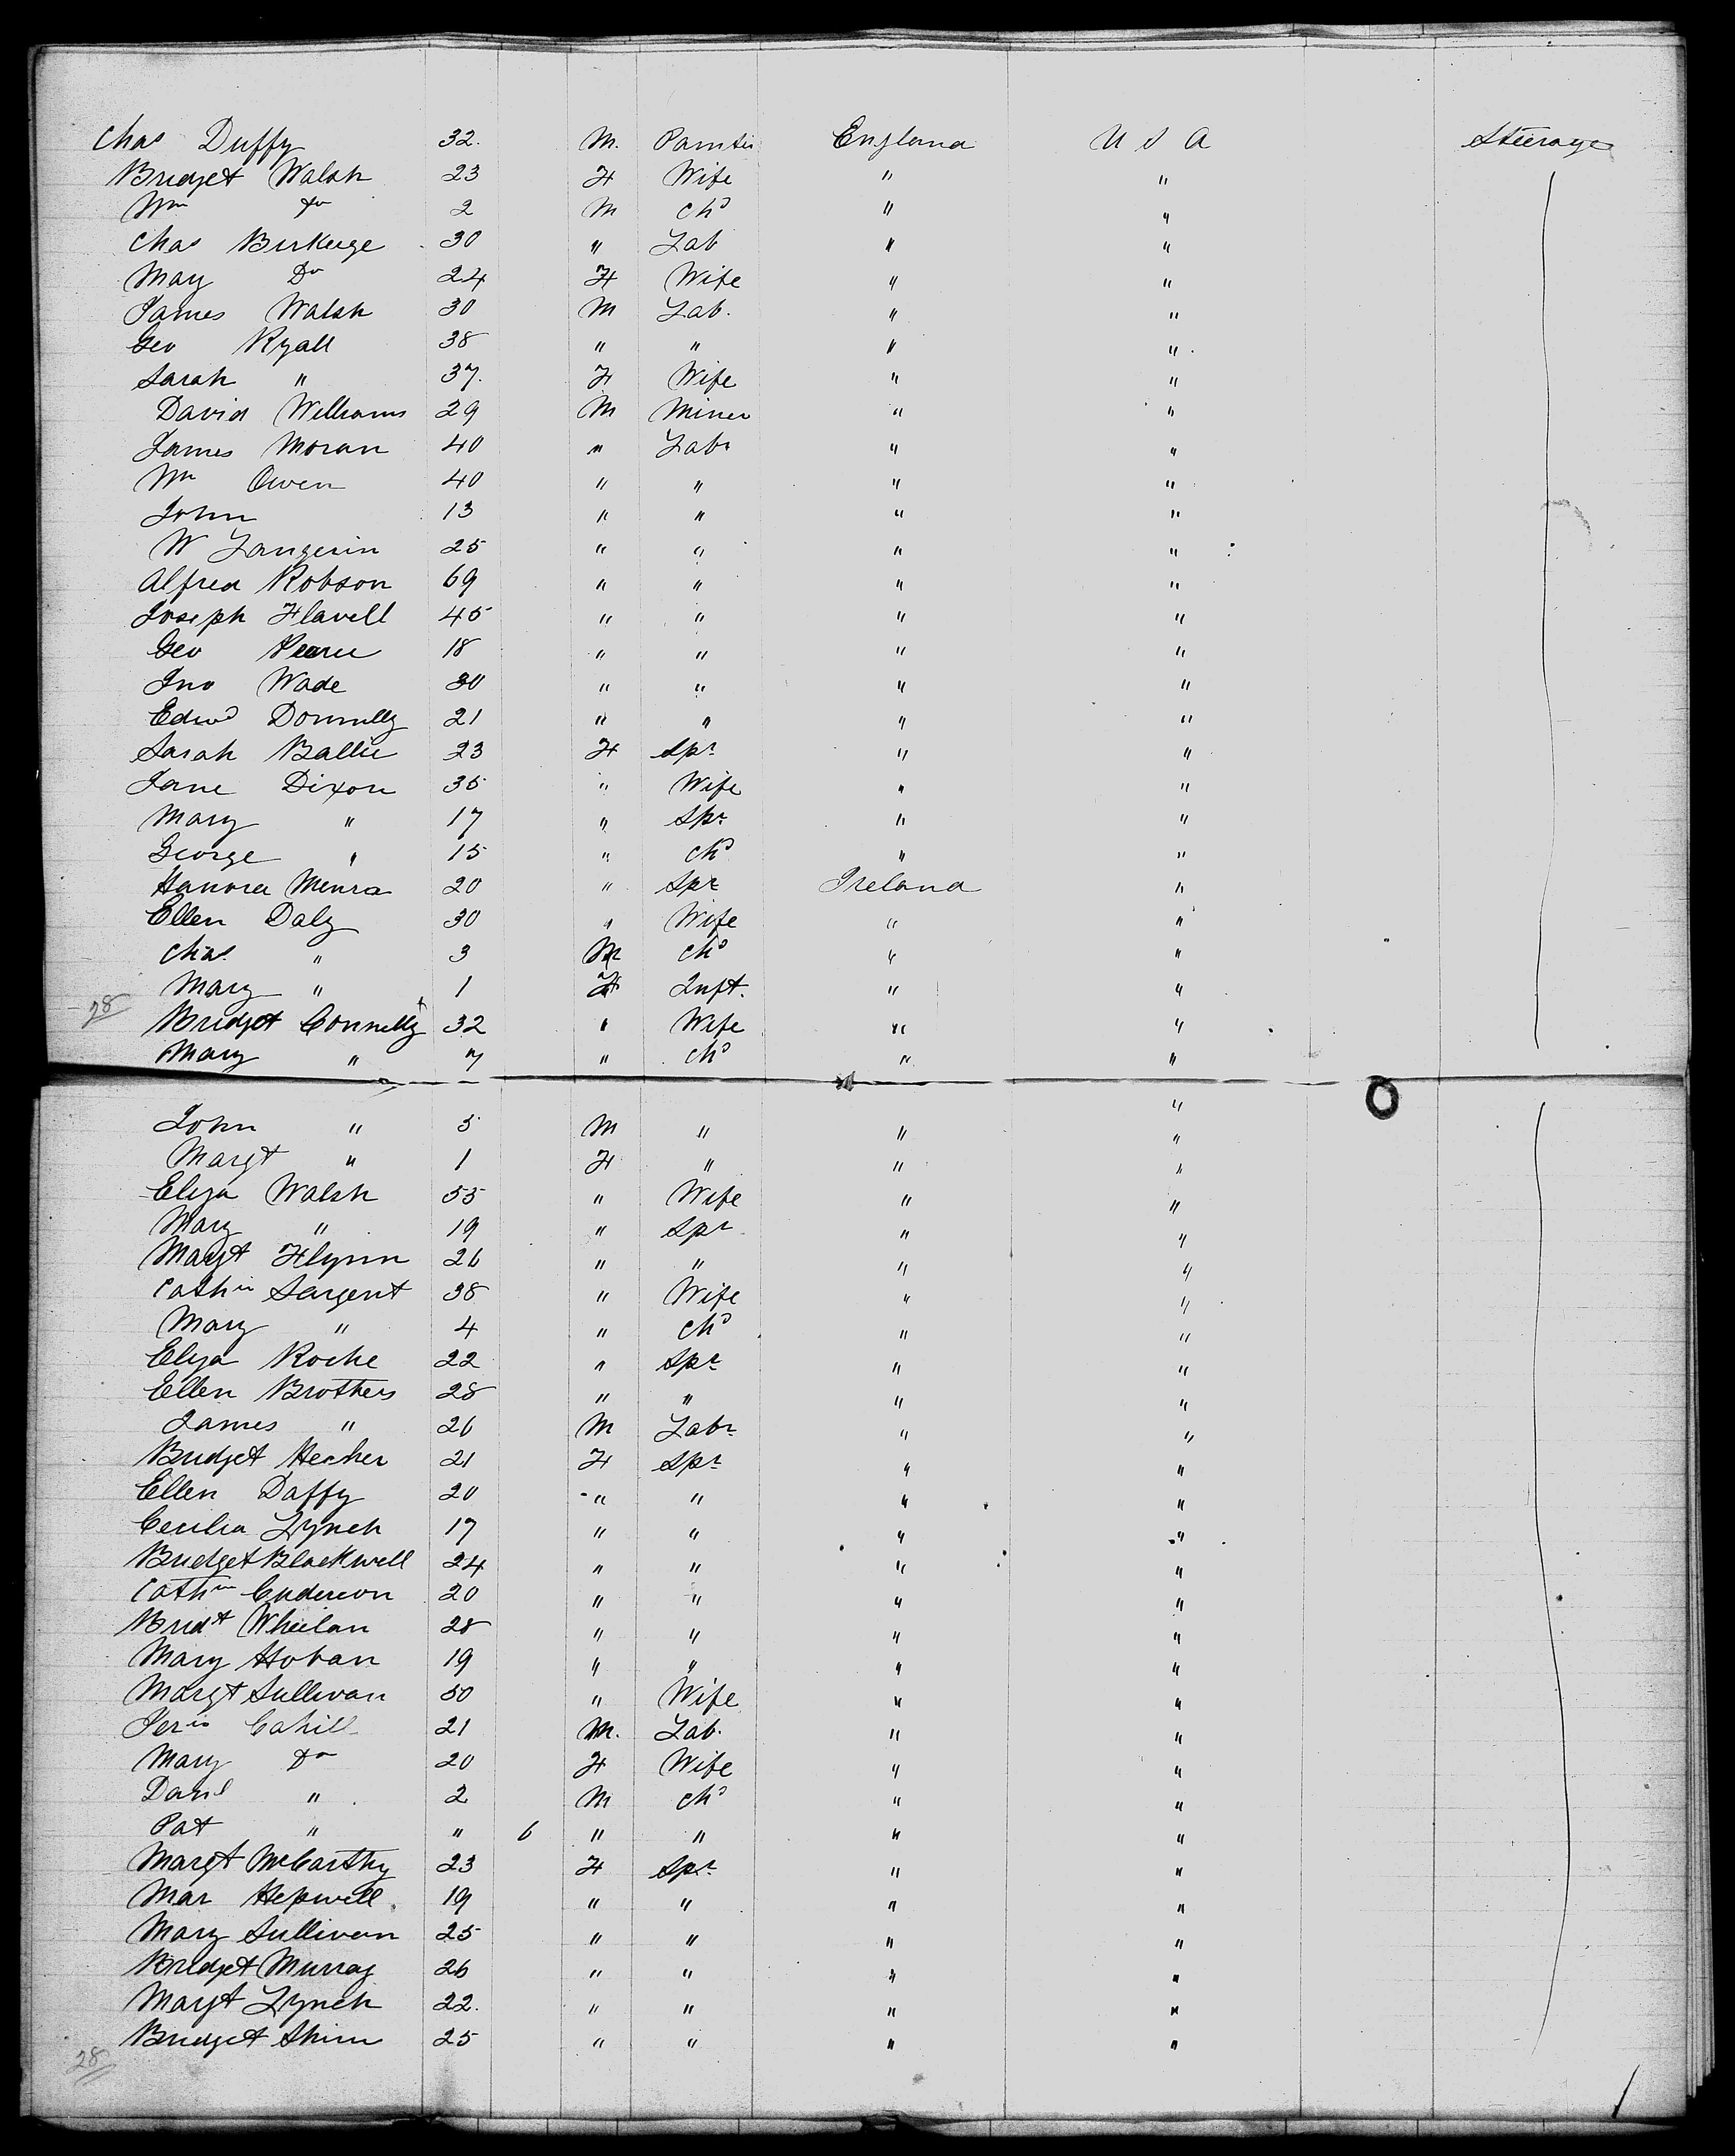 Chas Duffy 32. M. Painter England U S A Steerage
Bridget Walsh 23 F Wife " "
Wm Do 2 M Chd " "
Chas 30 " Lab " "
May Do 24 F Wife " "
James Walsh 30 M Lab. " "
Geo Ryall 38 " " " "
Sarah " 37. F Wife " "
David Williams 29 M Miner " "
James Moran 40 " Labr " "
Wm Owen 40 " " " "
John 13 " " " "
W Langerin 25 " " " "
Alfred Robson 69 " " " "
Joseph Flavell 45 " " " "
Geo Pearce 18 " " " "
Jno Wade 30 " " " "
Edwd Donnelly 21 " " " "
Sarah Ballie 23 F Spr " "
Jane Dixon 35 " Wife " "
Mary " 17 " Spr " "
George " 15 " Chd " "
Hanora 20 " Spr Ireland "
Ellen Daly 30 " Wife " "
Chas " 3 M Chd " "
Mary " 1 F Inft. " "
28 Bridget Connelly 32 " Wife " "
Mary " 7 " Chd " "
John " 5 M " " "
Margt " 1 F " " "
Eliza Walsh 55 " Wife " "
Mary " 19 " Spr " "
Margt Flynn 26 " " " "
Cathne Sargent 38 " Wife " "
Mary " 4 " Chd " "
Eliza Roche 22 " Spr " "
Ellen Brothers 28 " " " "
James " 26 M Labr " "
Bridget Hecher 21 F Spr " "
Ellen Daffy 20 " " " "
Cecilia Lynch 17 " " " "
Bridget Blackwell 24 " " " "
Cathne 20 " " " "
Bridt Wheelan 28 " " " "
Mary Hoban 19 " " " "
Margt Sullivan 50 " Wife " "
Cahill 21 M. Lab. " "
Mary Do 20 F Wife " "
Danl " 2 M Chd " "
Pat " " 6 " " " "
Margt McCarthy 23 F Spr " "
Mar Hepwell 19 " " " "
Mary Sullivan 25 " " " "
Bridget Murray 26 " " " "
Margt Lynch 22. " " " "
Bridget Shinn 25 " " " "
28